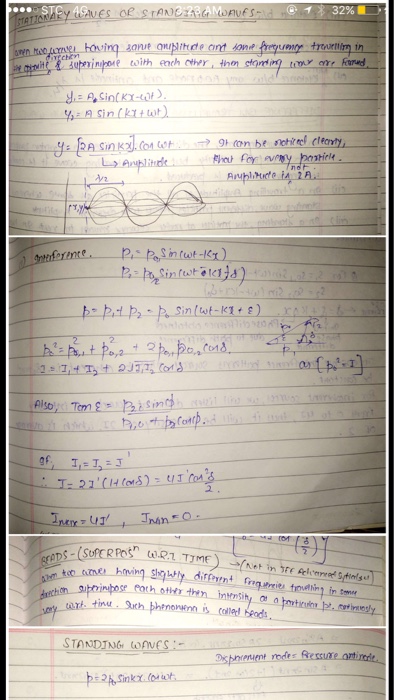 STC 4G 32%
STATIONARY WAVES OR STANDING WAVES-
when two waves having same amplitude and same frequency travelling in
direction
opposite & superimpose with each other, then standing wave are formed.
y₁ = A sin(kx-ωt).
y₂ = A sin(kx+ωt)
y = [2A sin kx] cos ωt → It can be noticed clearly,
↳ Amplitude that for every particle.
not
Amplitude is 2A.
λ/2
Interference. P₁ = P₀ sin(ωt-kx)
P = P₁ + P₂ = P₀ sin(ωt-kx+ε)
P₀² = P₀,₁² + P₀,₂² + 2P₀,₁P₀,₂ cosδ.
I = I₁ + I₂ + 2√I₁I₂ cosδ
Also, Tan ε =
If, I₁ = I₂ = I'
∴ I = 2I'(1+cosδ) = 4I' cos² δ/2.
Imax = 4I', Imin = 0.
BEADS- (SUPERPOSⁿ W.R.T TIME) → (Not in JEE Advanced Syllabus)
when two waves having slightly different frequencies travelling in same
direction superimpose each other then intensity at a particular pt. continuously
vary w.r.t. time. Such phenomenon is called beads.
STANDING WAVES:-
Displacement node = Pressure antinode.
p = 2p₀ sin kx. cos ωt.